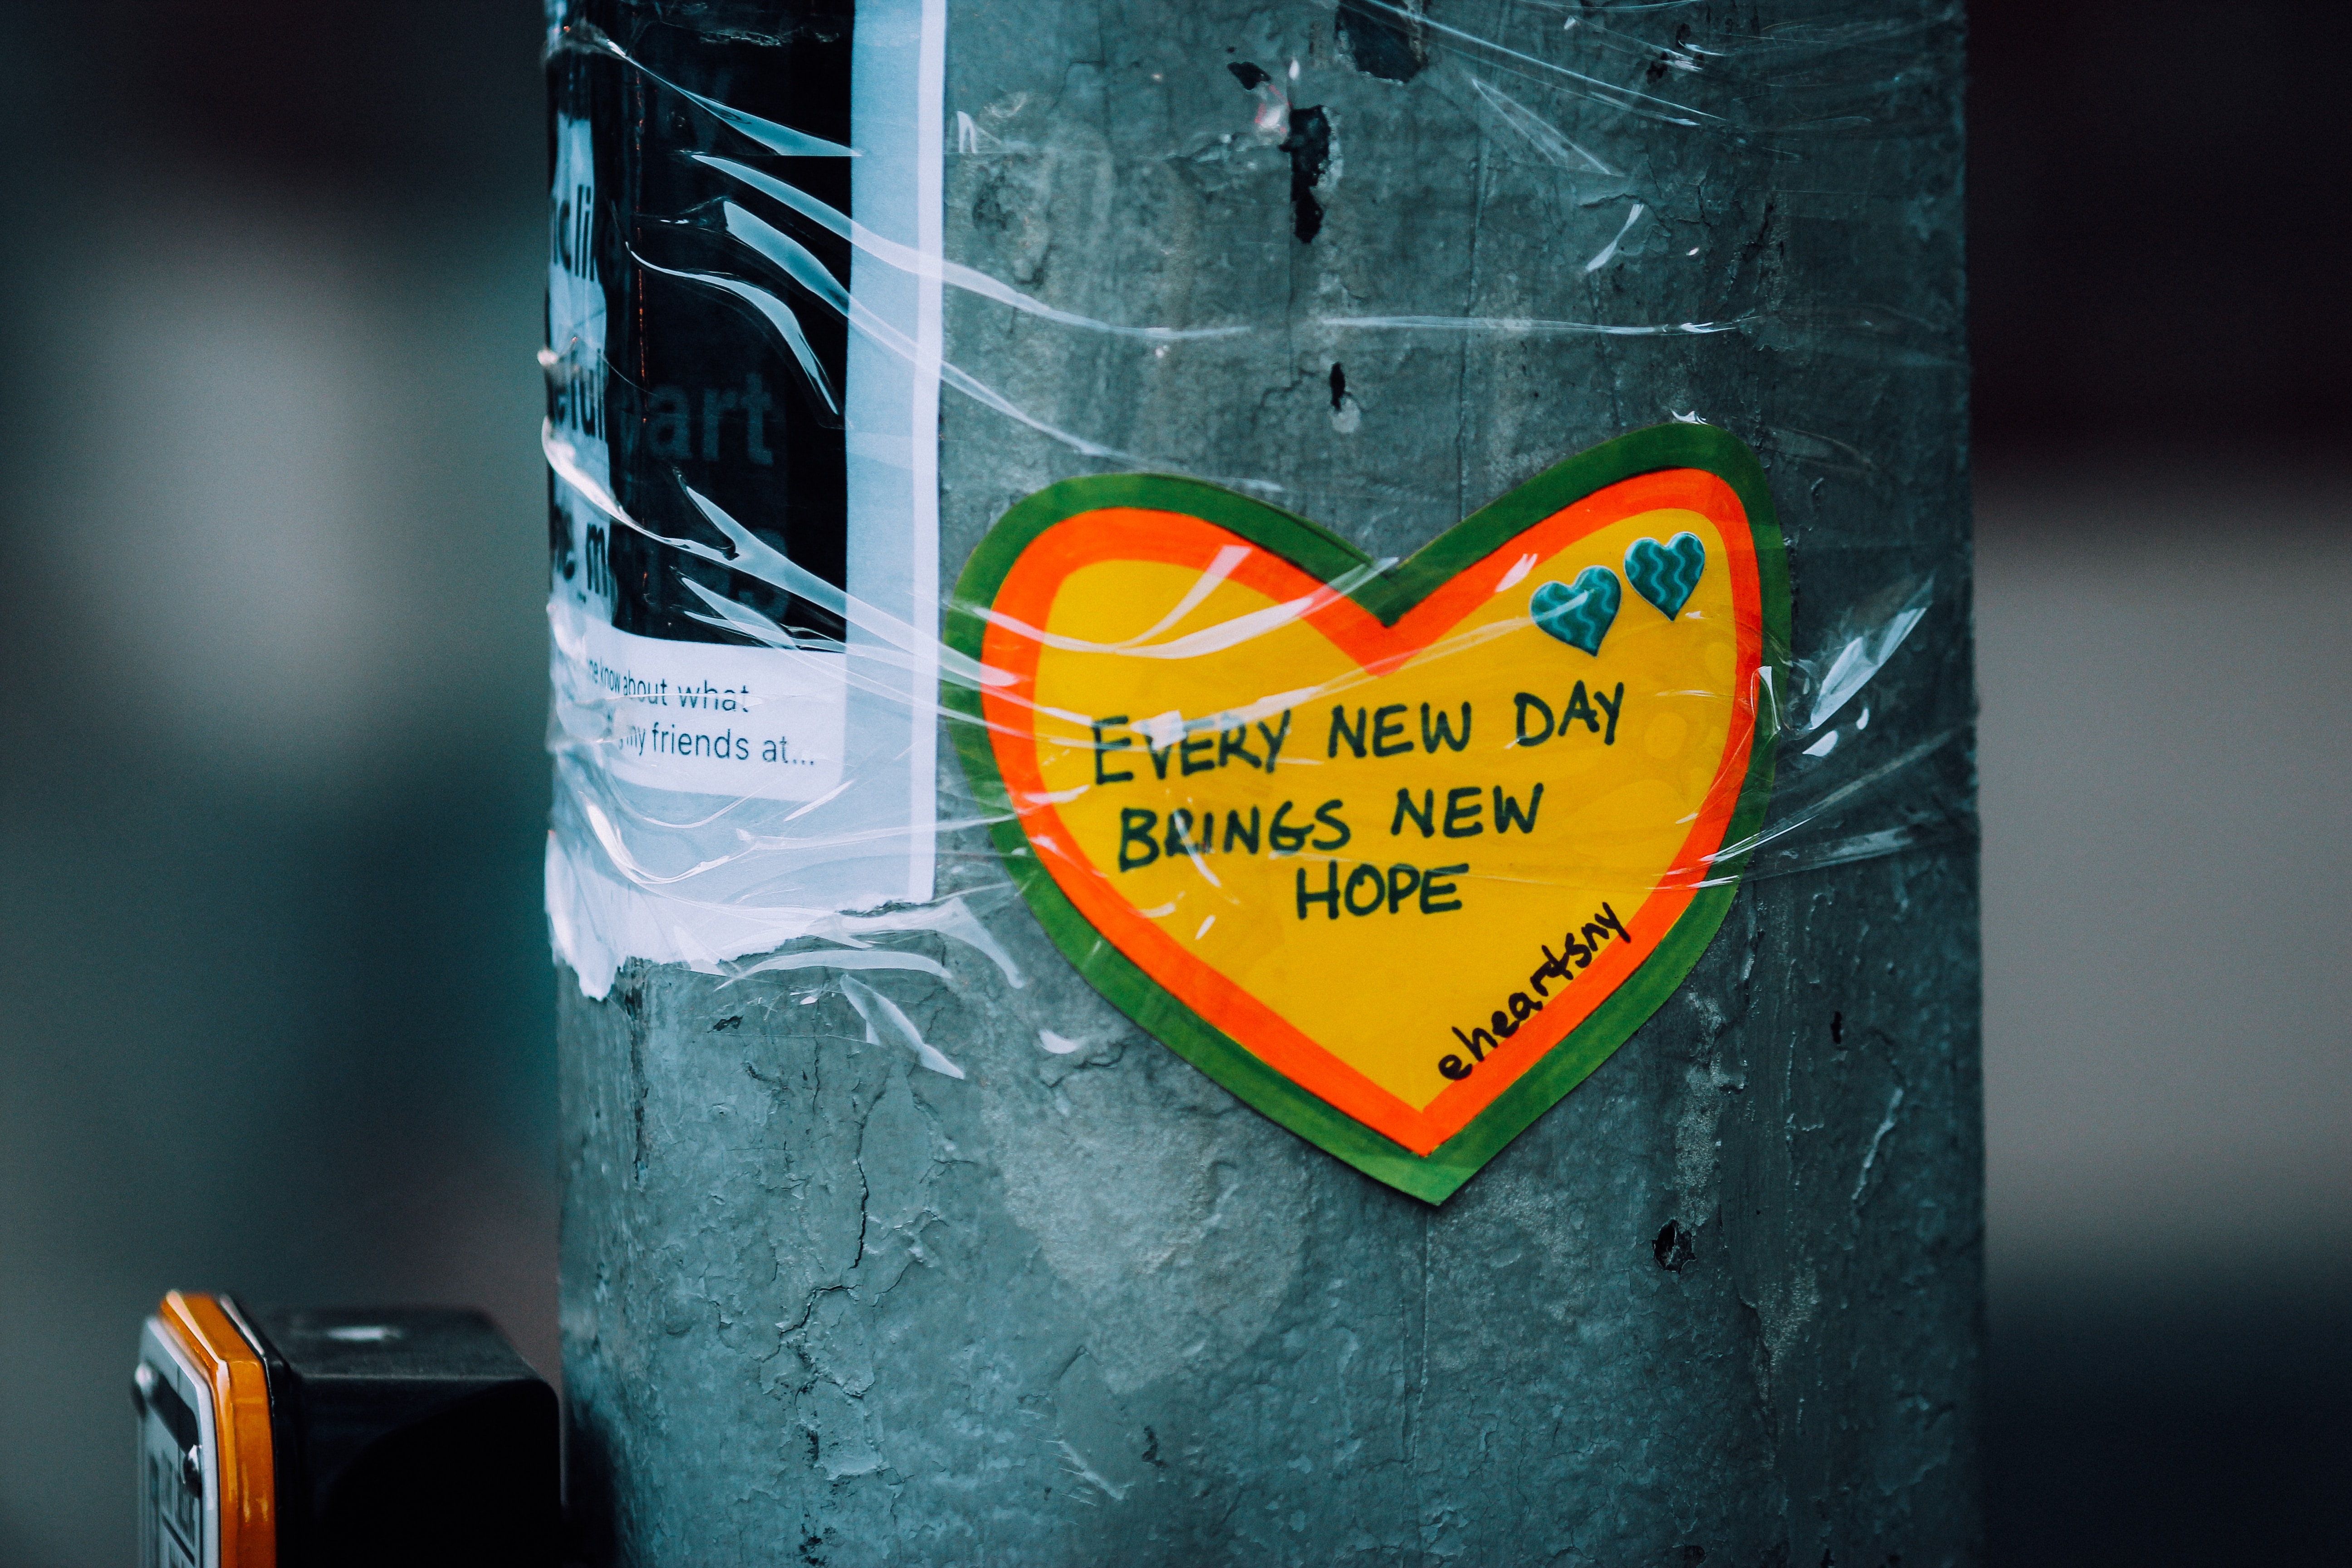 art
know about what
my friends at...
EVERY NEW DAY
BRINGS NEW
HOPE
eheartsny